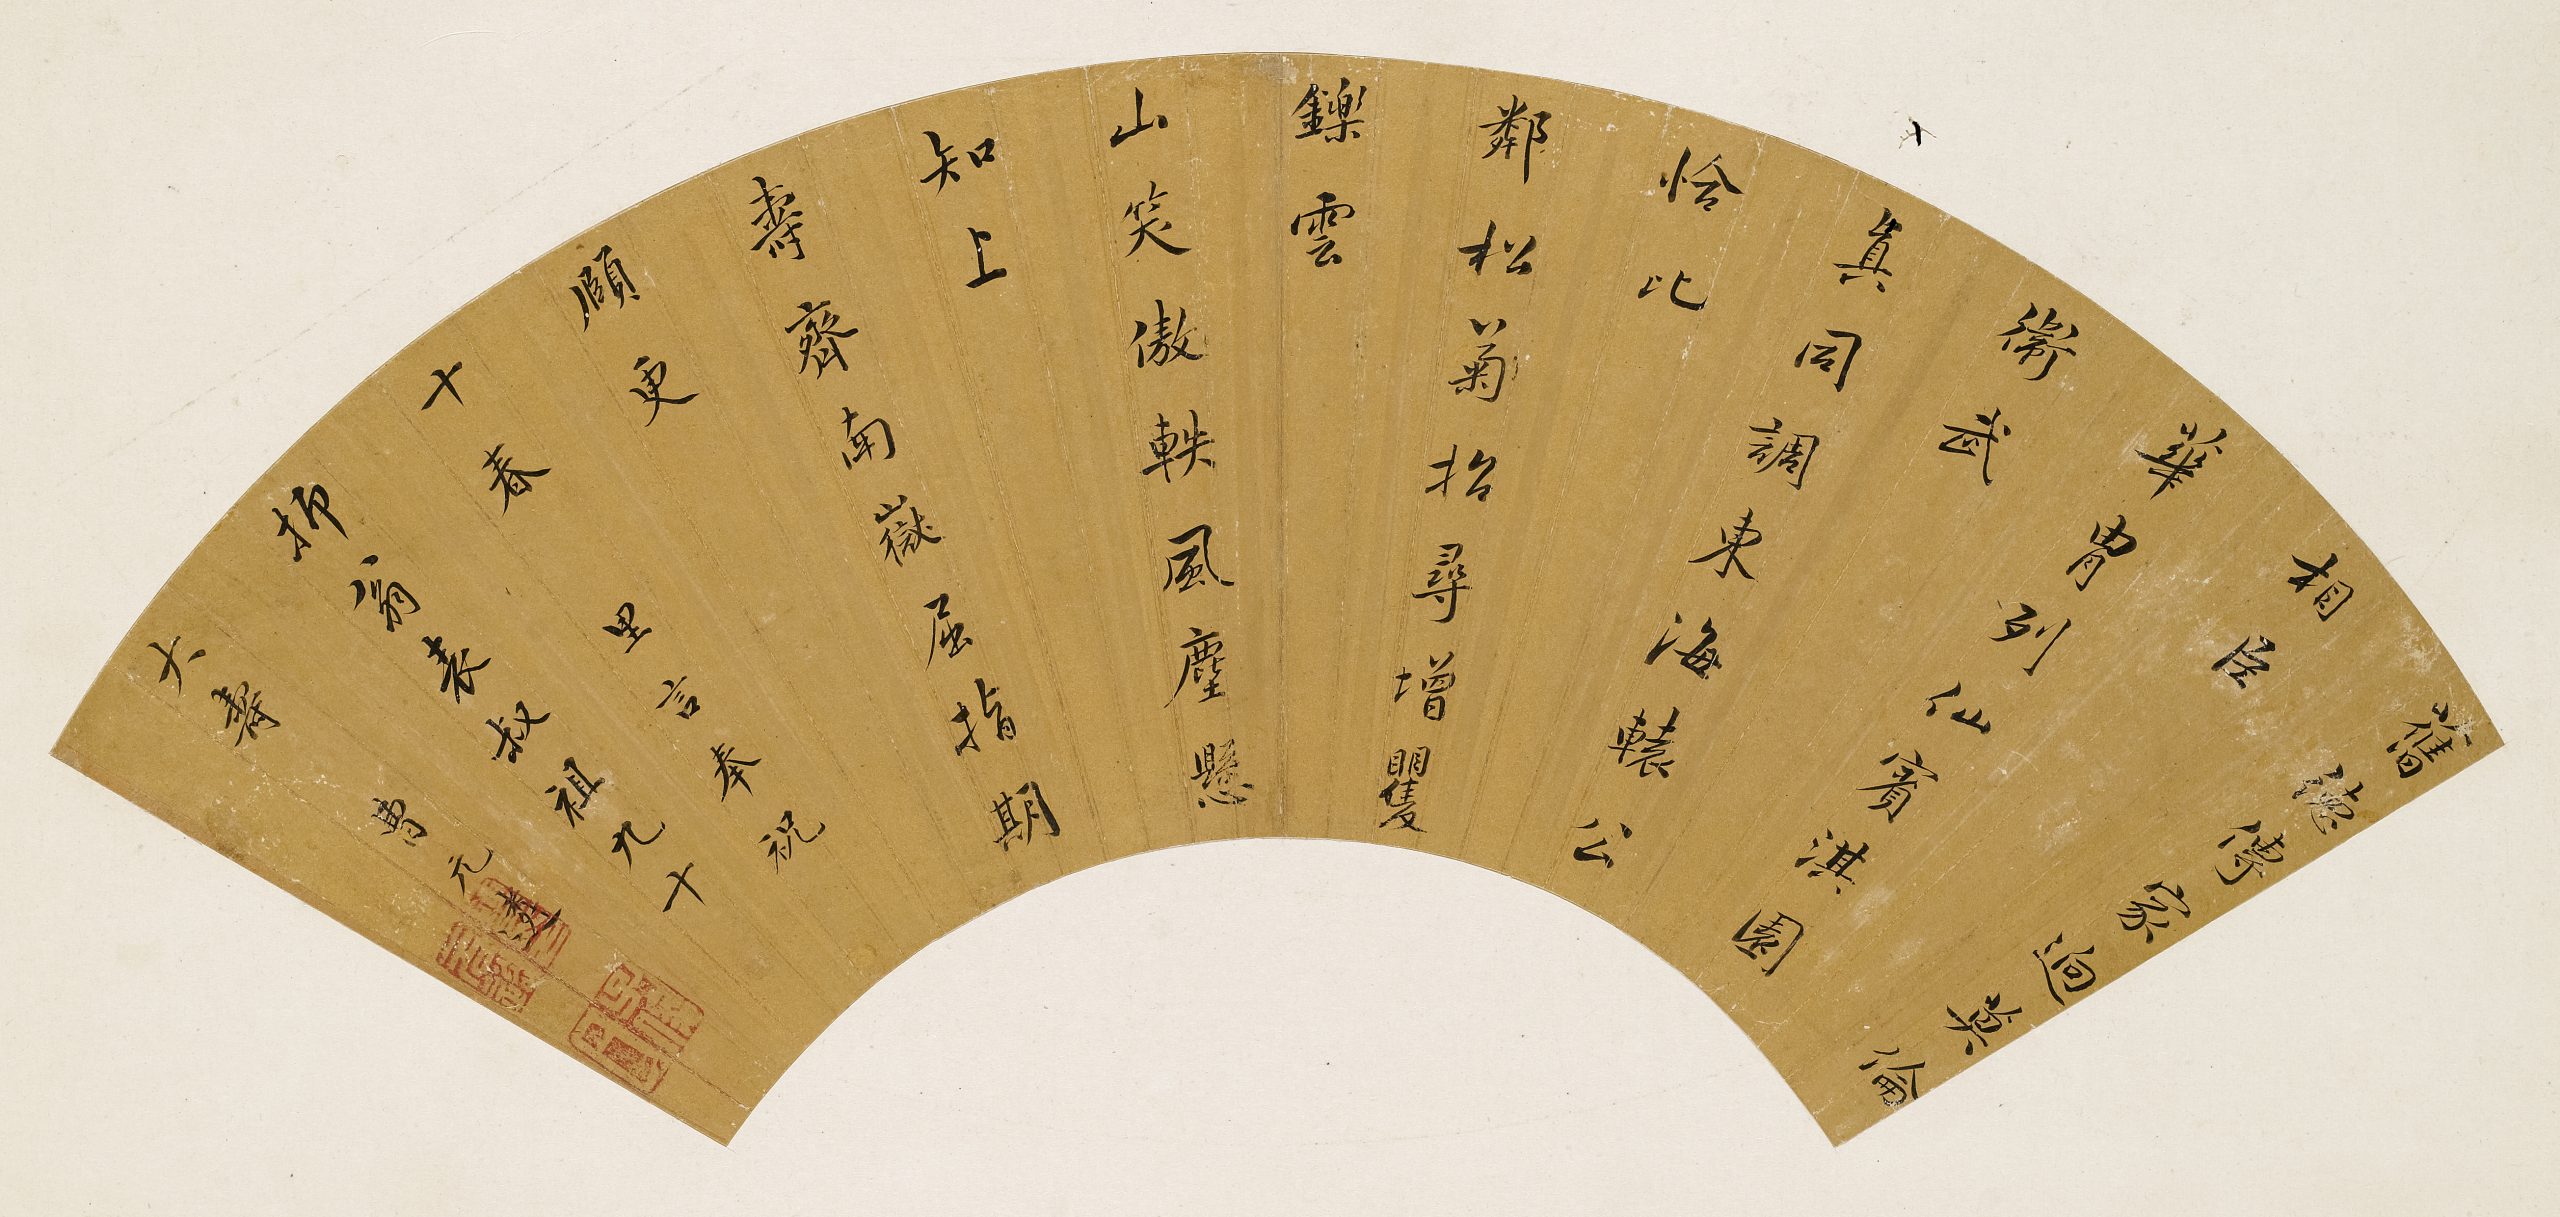 舊德傳家迥莫倫
相臣
華冑列仙賓淇園
衛武
真同調東海轅公
恰比
鄰松菊招尋增矍
鑠雲
山笑傲軼風塵懸
知上
壽齊南嶽屈指期
頤更
十春　里言奉祝
抑翁表叔祖九十
大壽　元